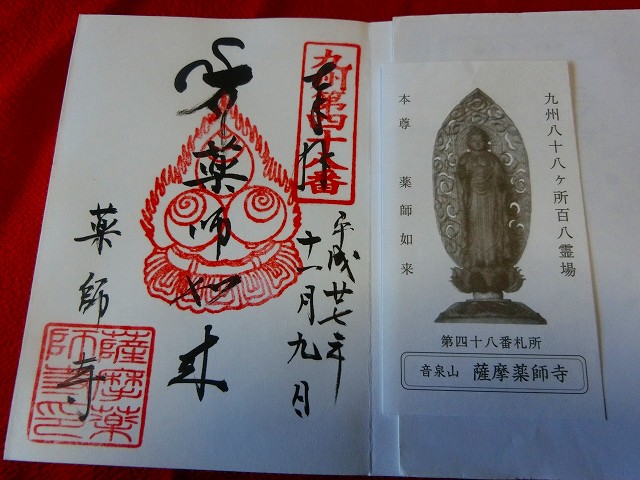 九州第四十八番
奉拝
平成廿七年
十一月九日
薬師如来
薬師寺
薩摩薬師寺印
九州八十八ヶ所百八霊場
本尊 薬師如来
第四十八番札所
音泉山 薩摩薬師寺